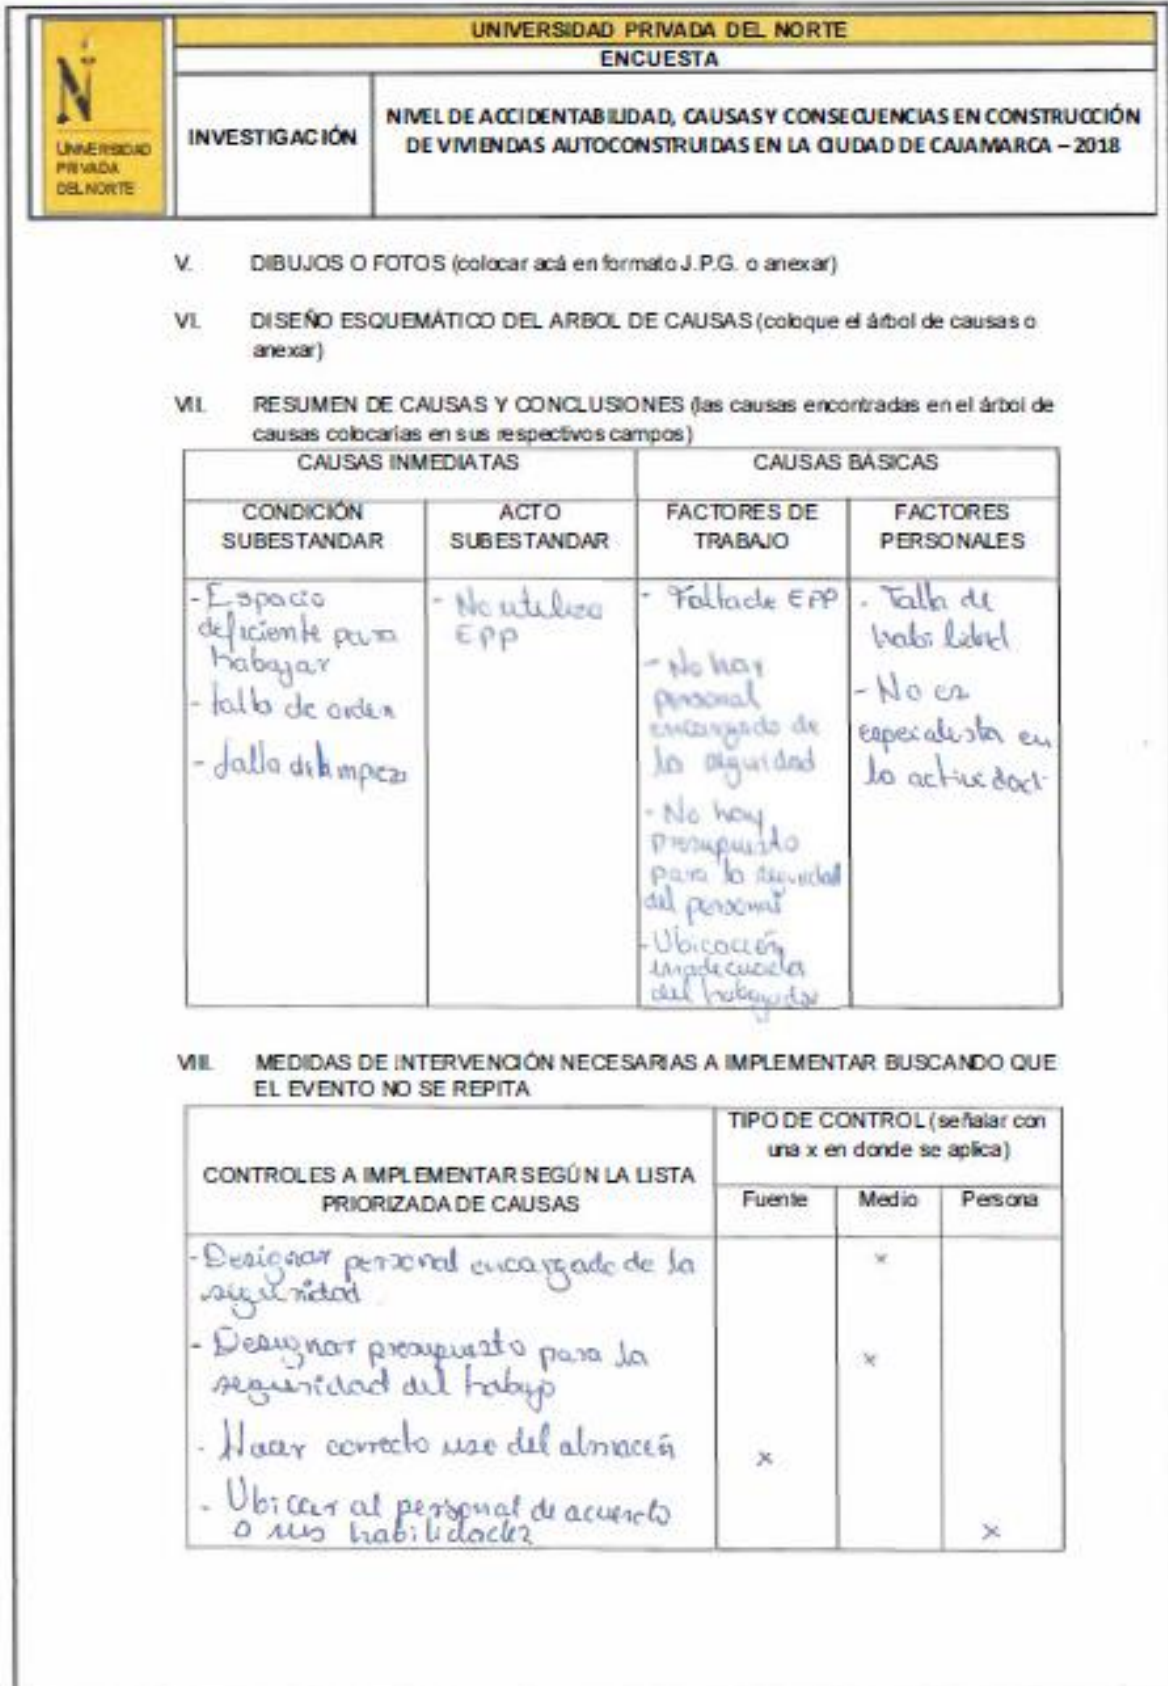 UNIVERSIDAD PRIVADA DEL NORTE
ENCUESTA
N
UNIVERSIDAD
PRIVADA
DEL NORTE
INVESTIGACIÓN
NIVEL DE ACCIDENTABILIDAD, CAUSAS Y CONSECUENCIAS EN CONSTRUCCIÓN
DE VIVIENDAS AUTOCONSTRUIDAS EN LA CIUDAD DE CAJAMARCA – 2018
V. DIBUJOS O FOTOS (colocar acá en formato J.P.G. o anexar)
VI. DISEÑO ESQUEMÁTICO DEL ARBOL DE CAUSAS (coloque el árbol de causas o
anexar)
VII. RESUMEN DE CAUSAS Y CONCLUSIONES (las causas encontradas en el árbol de
causas colocarlas en sus respectivos campos)
CAUSAS INMEDIATAS
CAUSAS BÁSICAS
CONDICIÓN
SUBESTANDAR
ACTO
SUBESTANDAR
FACTORES DE
TRABAJO
FACTORES
PERSONALES
- Espacio
deficiente para
trabajar
- falta de orden
- falta de limpieza
- No utiliza
EPP
- Falta de EPP
- No hay
personal
encargado de
la seguridad
- No hay
presupuesto
para la seguridad
del personal
- Ubicación
inadecuada
del trabajador
- Falta de
habilidad
- No es
especialista en
la actividad
VIII. MEDIDAS DE INTERVENCIÓN NECESARIAS A IMPLEMENTAR BUSCANDO QUE
EL EVENTO NO SE REPITA
CONTROLES A IMPLEMENTAR SEGÚN LA LISTA
PRIORIZADA DE CAUSAS
TIPO DE CONTROL (señalar con
una x en donde se aplica)
Fuente Medio Persona
- Designar personal encargado de la x
seguridad
- Designar presupuesto para la x
seguridad del trabajo
- Hacer correcto uso del almacén x
- Ubicar al personal de acuerdo
a sus habilidades x